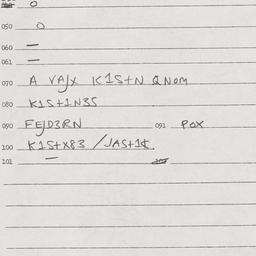 0
050 0
060 —
061 —
070 A VAJX K1S+N QNOM
080 K1S+1N35
090 FEJD3RN 091 POX
100 K1S+X83 /JAS+1¢.
101 —